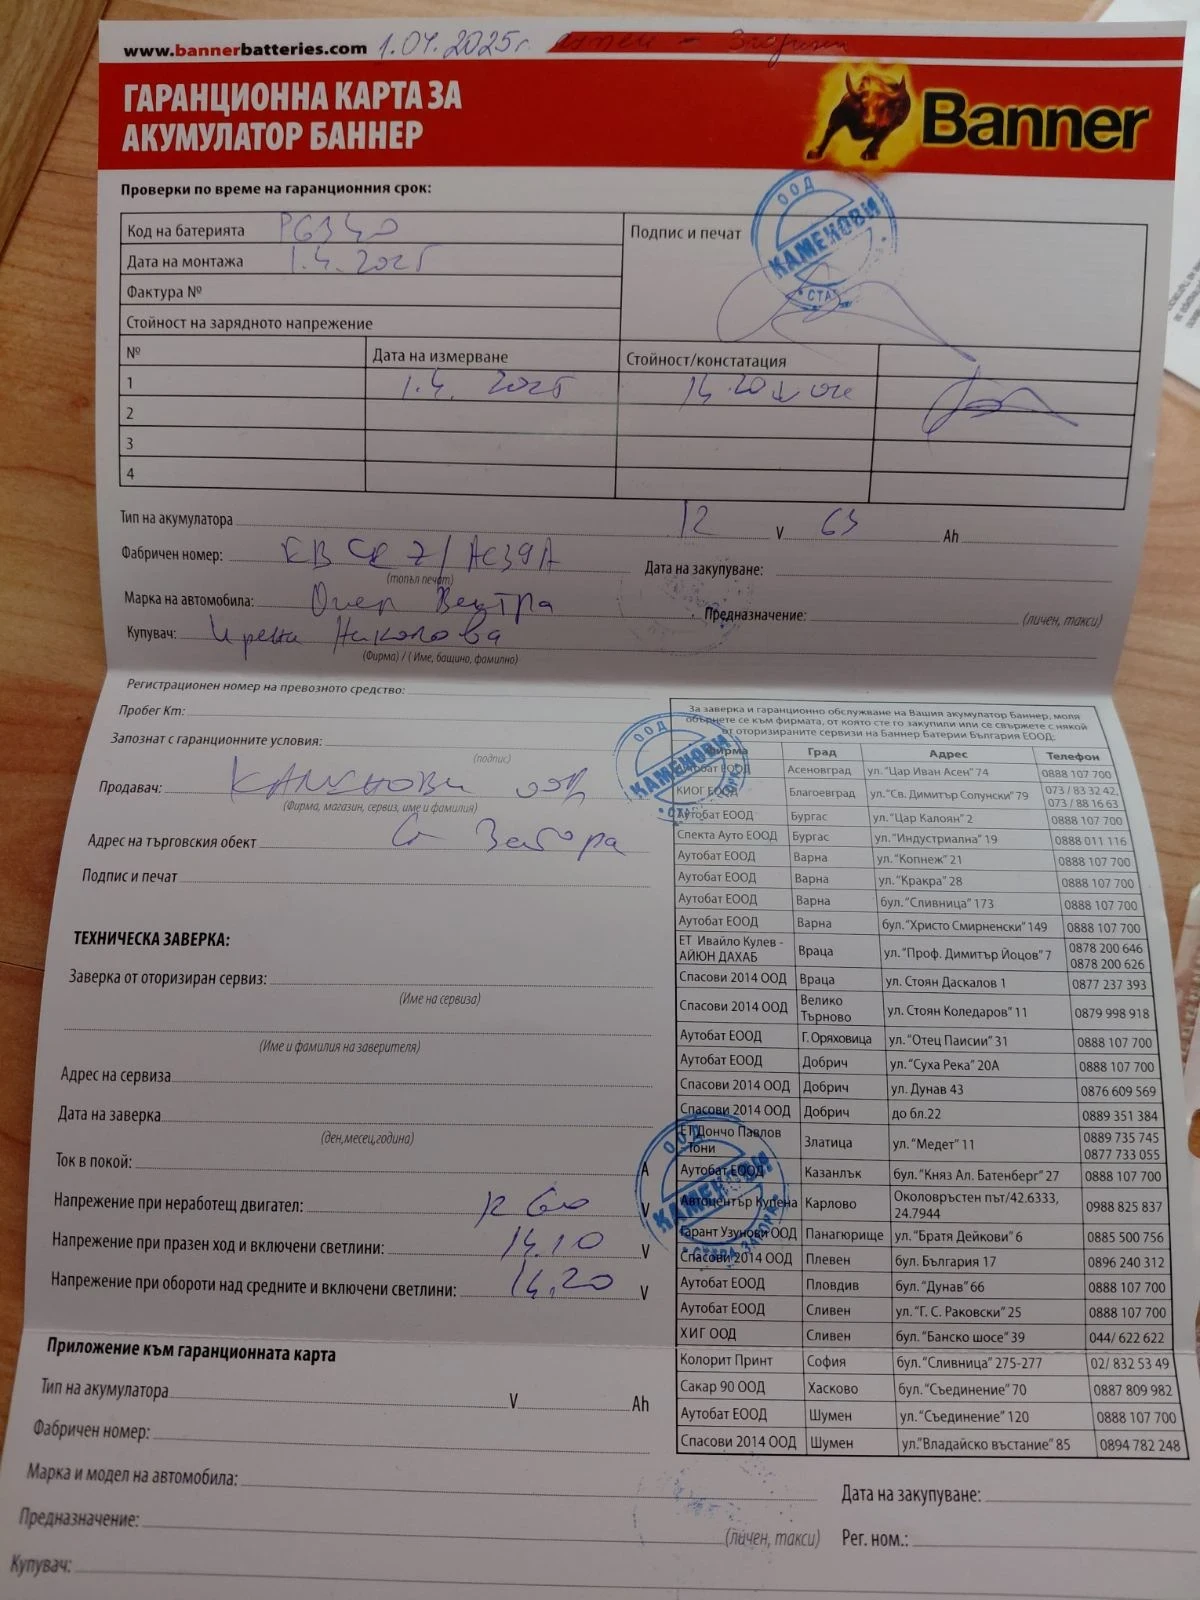 www.bannerbatteries.com 1.04.2025г.
ГАРАНЦИОННА КАРТА ЗА
АКУМУЛАТОР БАННЕР
Banner
Проверки по време на гаранционния срок:
Код на батерията P6340
Подпис и печат
Дата на монтажа 1.4.2025
Фактура №
Стойност на зарядното напрежение
ООД КАМЕНОВИ
№ Дата на измерване Стойност/констатация
1 1.4. 2025 14.20
2
3
4
Тип на акумулатора 12 V 63 Ah
Фабричен номер:
(топъл печат)
Дата на закупуване:
Марка на автомобила: Опел Вектра
Предназначение: (личен, такси)
Купувач: Ирена Николова
(Фирма) / ( Име, бащино, фамилно)
Регистрационен номер на превозното средство:
Пробег Km:
Запознат с гаранционните условия:
(подпис)
Продавач: КАМЕНОВИ ООД
(Фирма, магазин, сервиз, име и фамилия)
Адрес на търговския обект Ст Загора
Подпис и печат
ТЕХНИЧЕСКА ЗАВЕРКА:
Заверка от оторизиран сервиз:
(Име на сервиза)
(Име и фамилия на заверителя)
Адрес на сервиза
Дата на заверка
(ден,месец,година)
Ток в покой: A
Напрежение при неработещ двигател: 12 60 V
Напрежение при празен ход и включени светлини: 14.10 V
Напрежение при обороти над средните и включени светлини: 14.20 V
За заверка и гаранционно обслужване на Вашия акумулатор Баннер, моля
обърнете се към фирмата, от която сте го закупили или се свържете с някой
от оторизираните сервизи на Баннер Батерии България ЕООД:
Фирма Град Адрес Телефон
Аутобат ЕООД Асеновград ул. "Цар Иван Асен" 74 0888 107 700
КИОГ ЕООД Благоевград ул."Св. Димитър Солунски" 79 073 / 83 32 42, 073 / 88 16 63
Аутобат ЕООД Бургас ул. "Цар Калоян" 2 0888 107 700
Спекта Ауто ЕООД Бургас ул. "Индустриална" 19 0888 011 116
Аутобат ЕООД Варна ул. "Копнеж" 21 0888 107 700
Аутобат ЕООД Варна ул. "Кракра" 28 0888 107 700
Аутобат ЕООД Варна бул. "Сливница" 173 0888 107 700
Аутобат ЕООД Варна бул. "Христо Смирненски" 149 0888 107 700
ЕТ Ивайло Кулев - АЙЮН ДАХАБ Враца ул. "Проф. Димитър Йоцов" 7 0878 200 646 0878 200 626
Спасови 2014 ООД Враца ул. Стоян Даскалов 1 0877 237 393
Спасови 2014 ООД Велико Търново ул. Стоян Коледаров" 11 0879 998 918
Аутобат ЕООД Г. Оряховица ул. "Отец Паисии" 31 0888 107 700
Аутобат ЕООД Добрич ул. "Суха Река" 20А 0888 107 700
Спасови 2014 ООД Добрич ул. Дунав 43 0876 609 569
Спасови 2014 ООД Добрич до бл.22 0889 351 384
ЕТ Дончо Павлов - Тони Златица ул. "Медет" 11 0889 735 745 0877 733 055
Аутобат ЕООД Казанлък бул. "Княз Ал. Батенберг" 27 0888 107 700
Автоцентър Купена Карлово Околовръстен път/42.6333, 24.7944 0988 825 837
Гарант Узунови ООД Панагюрище ул. "Братя Дейкови" 6 0885 500 756
Спасови 2014 ООД Плевен бул. България 17 0896 240 312
Аутобат ЕООД Пловдив бул. "Дунав" 66 0888 107 700
Аутобат ЕООД Сливен ул. "Г. С. Раковски" 25 0888 107 700
ХИГ ООД Сливен бул. "Банско шосе" 39 044/ 622 622
Колорит Принт София бул. "Сливница" 275-277 02/ 832 53 49
Сакар 90 ООД Хасково бул. "Съединение" 70 0887 809 982
Аутобат ЕООД Шумен ул. "Съединение" 120 0888 107 700
Спасови 2014 ООД Шумен ул."Владайско въстание" 85 0894 782 248
ООД КАМЕНОВИ
ООД КАМЕНОВИ СТАРА ЗАГОРА
Приложение към гаранционната карта
Тип на акумулатора V Ah
Фабричен номер:
Марка и модел на автомобила:
Дата на закупуване:
Предназначение: (личен, такси)
Рег. ном.:
Купувач: